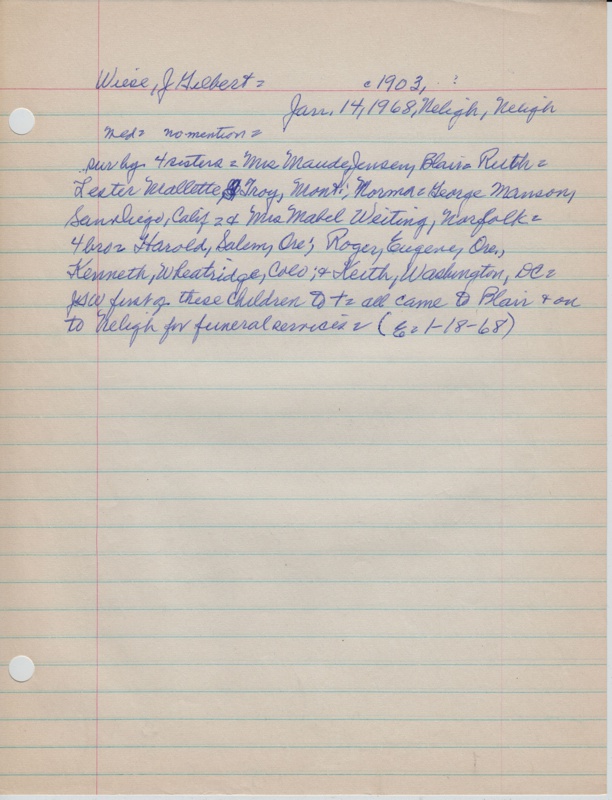 Wiese, J Gilbert = c1903, ?
Jan. 14, 1968, Neligh, Neligh
med = no mention =
sur by 4 sisters = Mrs Maude Jensen, Blair = Ruth =
Lester Mallette, Troy, Mont; Norma = George Manson,
San Diego, Calif = & Mrs Mabel Weiting, Norfolk =
4 bro = Harold, Salem, Ore; Roger, Eugene, Ore,
Kenneth, Wheatridge, Colo; & Keith, Washington, DC =
first of these children to + = all came to Blair & on
to Neligh for funeral services = (E = 1-18-68)